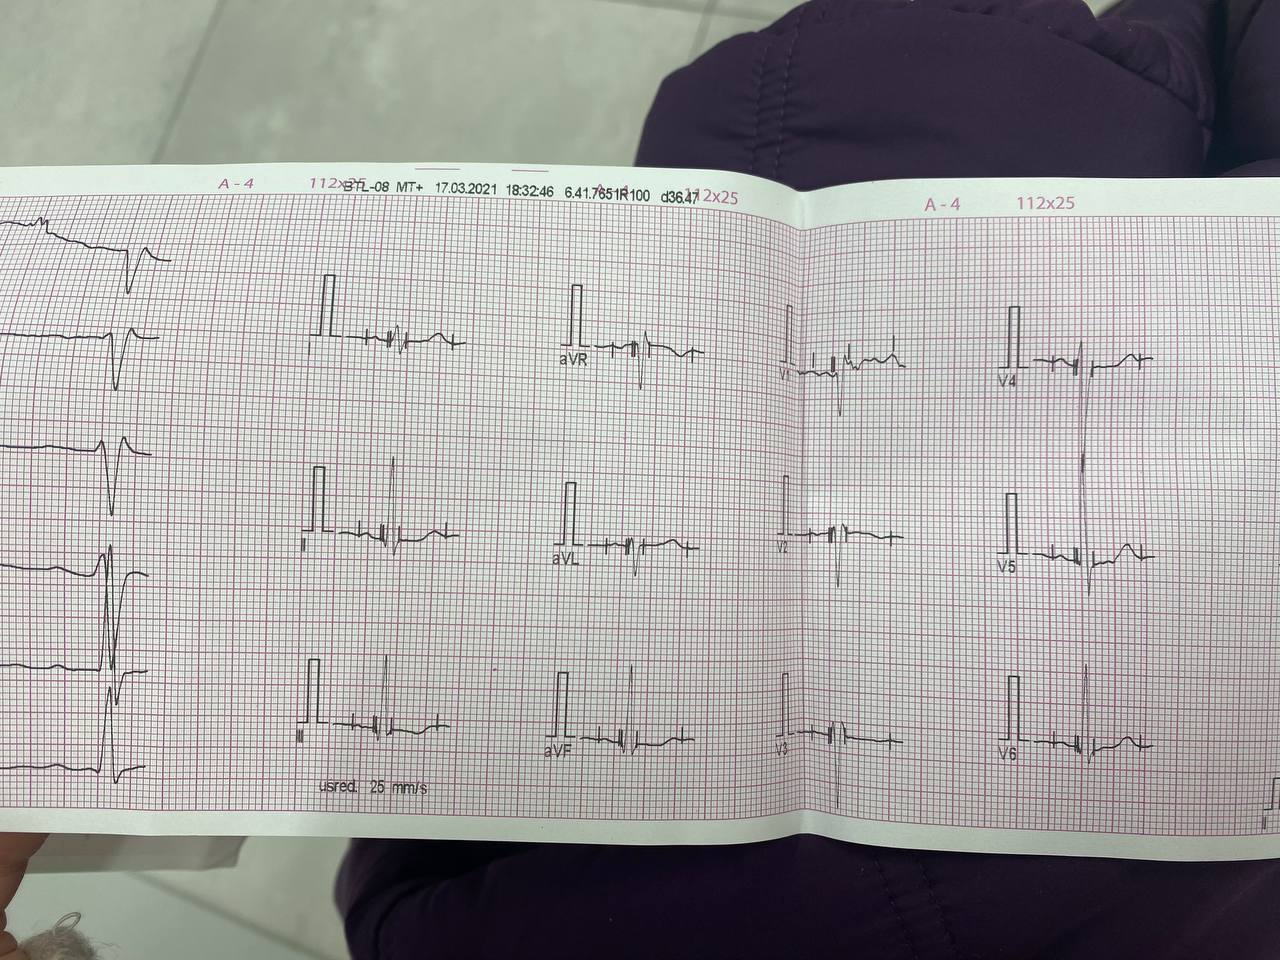 A - 4 112x25 A - 4 112x25 A - 4 112x25
BTL-08 MT+ 17.03.2021 18:32:46 6.41.7651R100 d36.47
I aVR V1 V4
II aVL V2 V5
III aVF V3 V6
usred. 25 mm/s
II